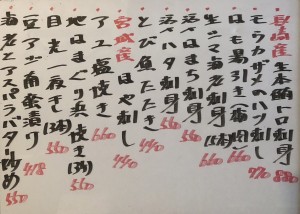 長崎産 生本鮪トロ刺身 880
モウカザメのハツ刺し 770
はも湯引き(梅肉) 660
生ニマ海老刺身(5本) 660
活〆はまち刺身 550
活〆ハタ刺身 550
とび魚たたき 440
宮城産 ほや刺し 440
アユ塩焼き 660
地はまぐり浜焼き(3ヶ) 660
目光一夜干し(3本) 550
豆アジ南蛮漬け 418
海老とアスパラバター炒め 550